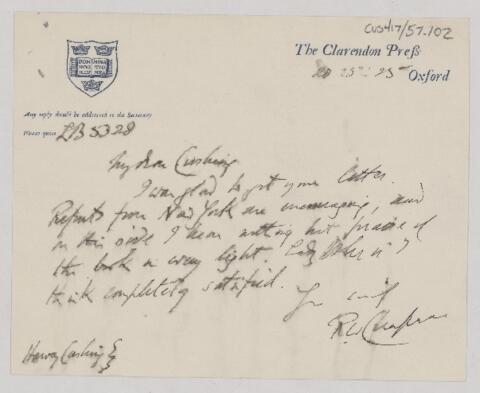 CUS417/57.102
The Clarendon Press
Oxford
DOMINUS
Any reply should be addressed to the Secretary
Please quote LB 5328
My dear Cushing
I was glad to get your letter.
Reports from New York are encouraging, and
on this side I hear nothing but praise of
the book in every light. Lady Osler is I
think completely satisfied.
R W Chapman
Harvey Cushing Esq